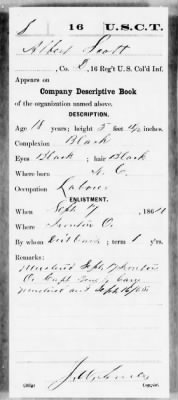 S 16 U.S.C.T.
Albert Scott
, Co. D, 16 Reg't U.S. Col'd Inf.
Appears on
Company Descriptive Book
of the organization named above.
DESCRIPTION.
Age 18 years; height 5 feet 4½ inches
Complexion Black
Eyes Black; hair Black
Where born N. C.
Occupation Laborer
ENLISTMENT.
When Sept 7, 1864
Where Ironton O.
By whom ; term 1 y'rs.
Remarks:
Mustered Sept 7 Ironton
O. Capt
mustered out Sept
Copyist.